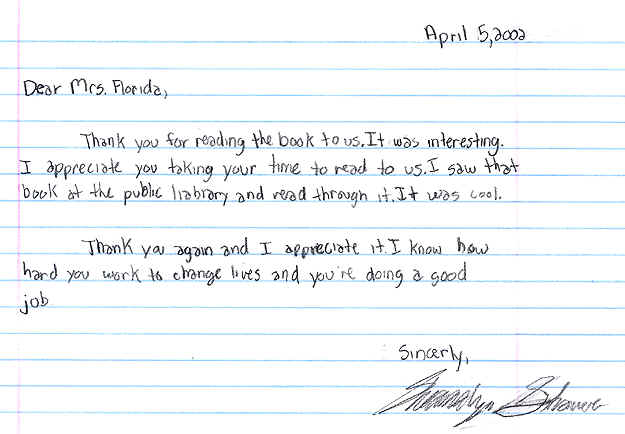 April 5, 2002
Dear Mrs. Florida,
Thank you for reading the book to us. It was interesting.
I appreciate you taking your time to read to us. I saw that
book at the public liabrary and read through it. It was cool.
Thank you again and I appreciate it. I know how
hard you work to change lives and you're doing a good
job
Sincerly,